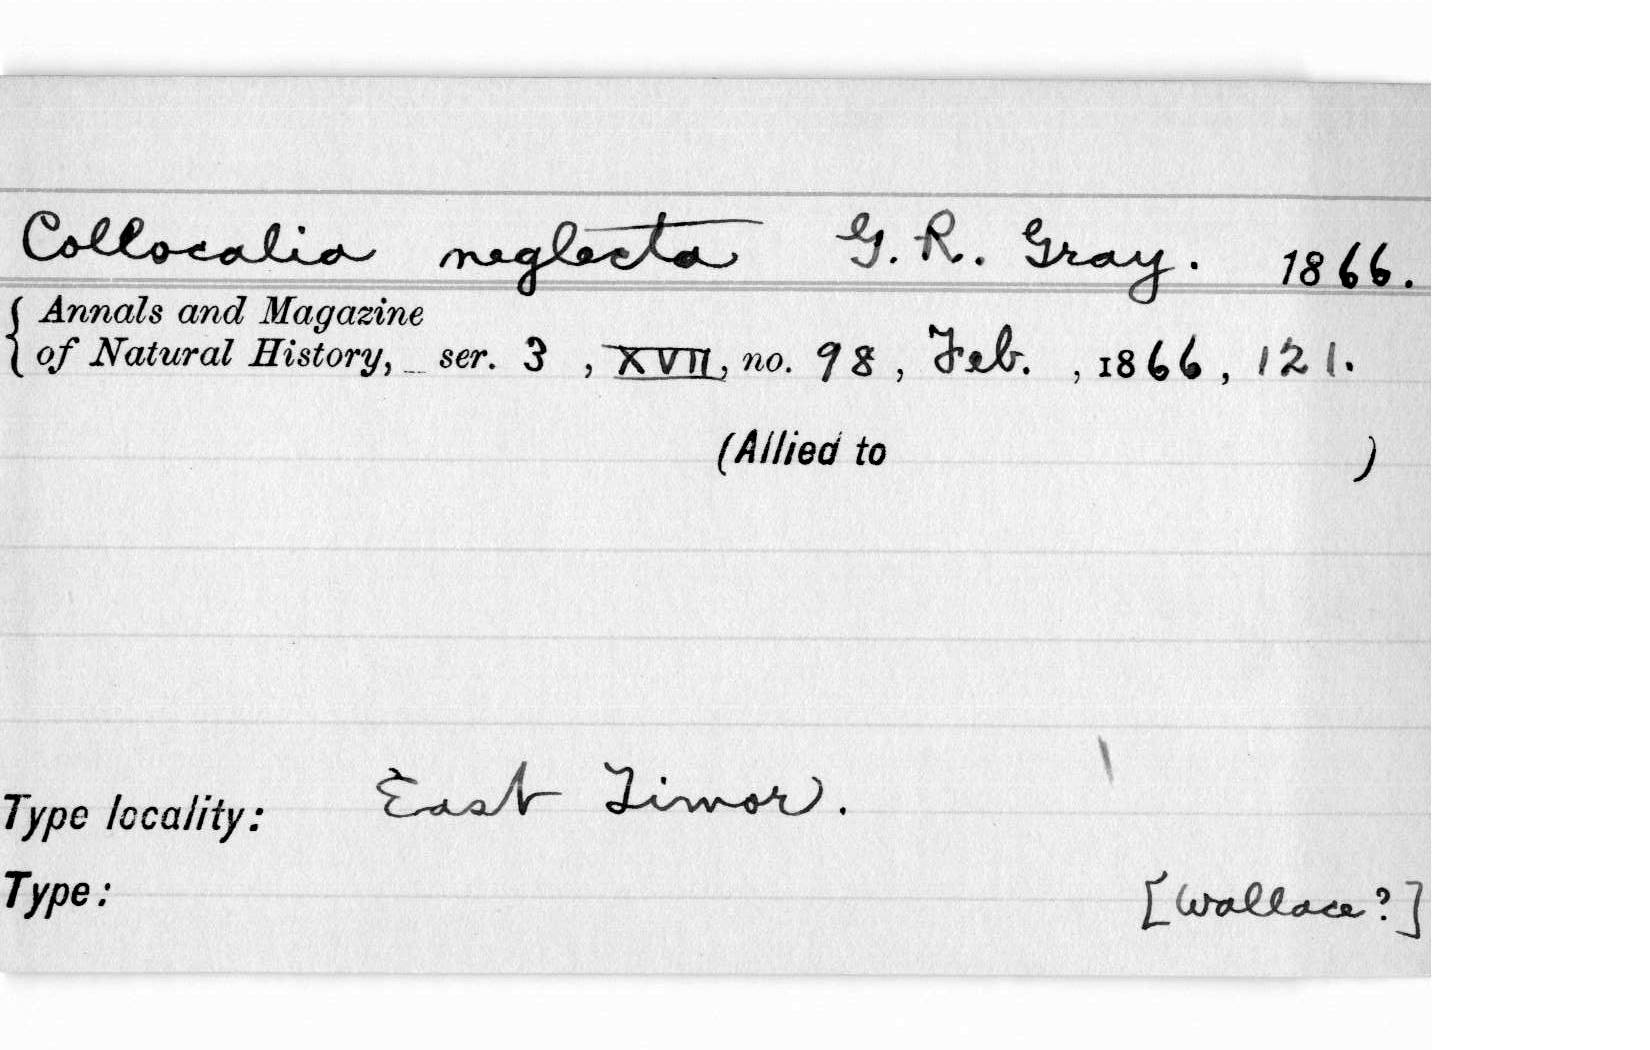 Collocalia neglecta G. R. Gray. 1866.
{ Annals and Magazine
of Natural History, ser. 3, XVII, no. 98, Feb., 1866, 121.
(Allied to )
Type locality: East Timor.
Type: [Wallace?]